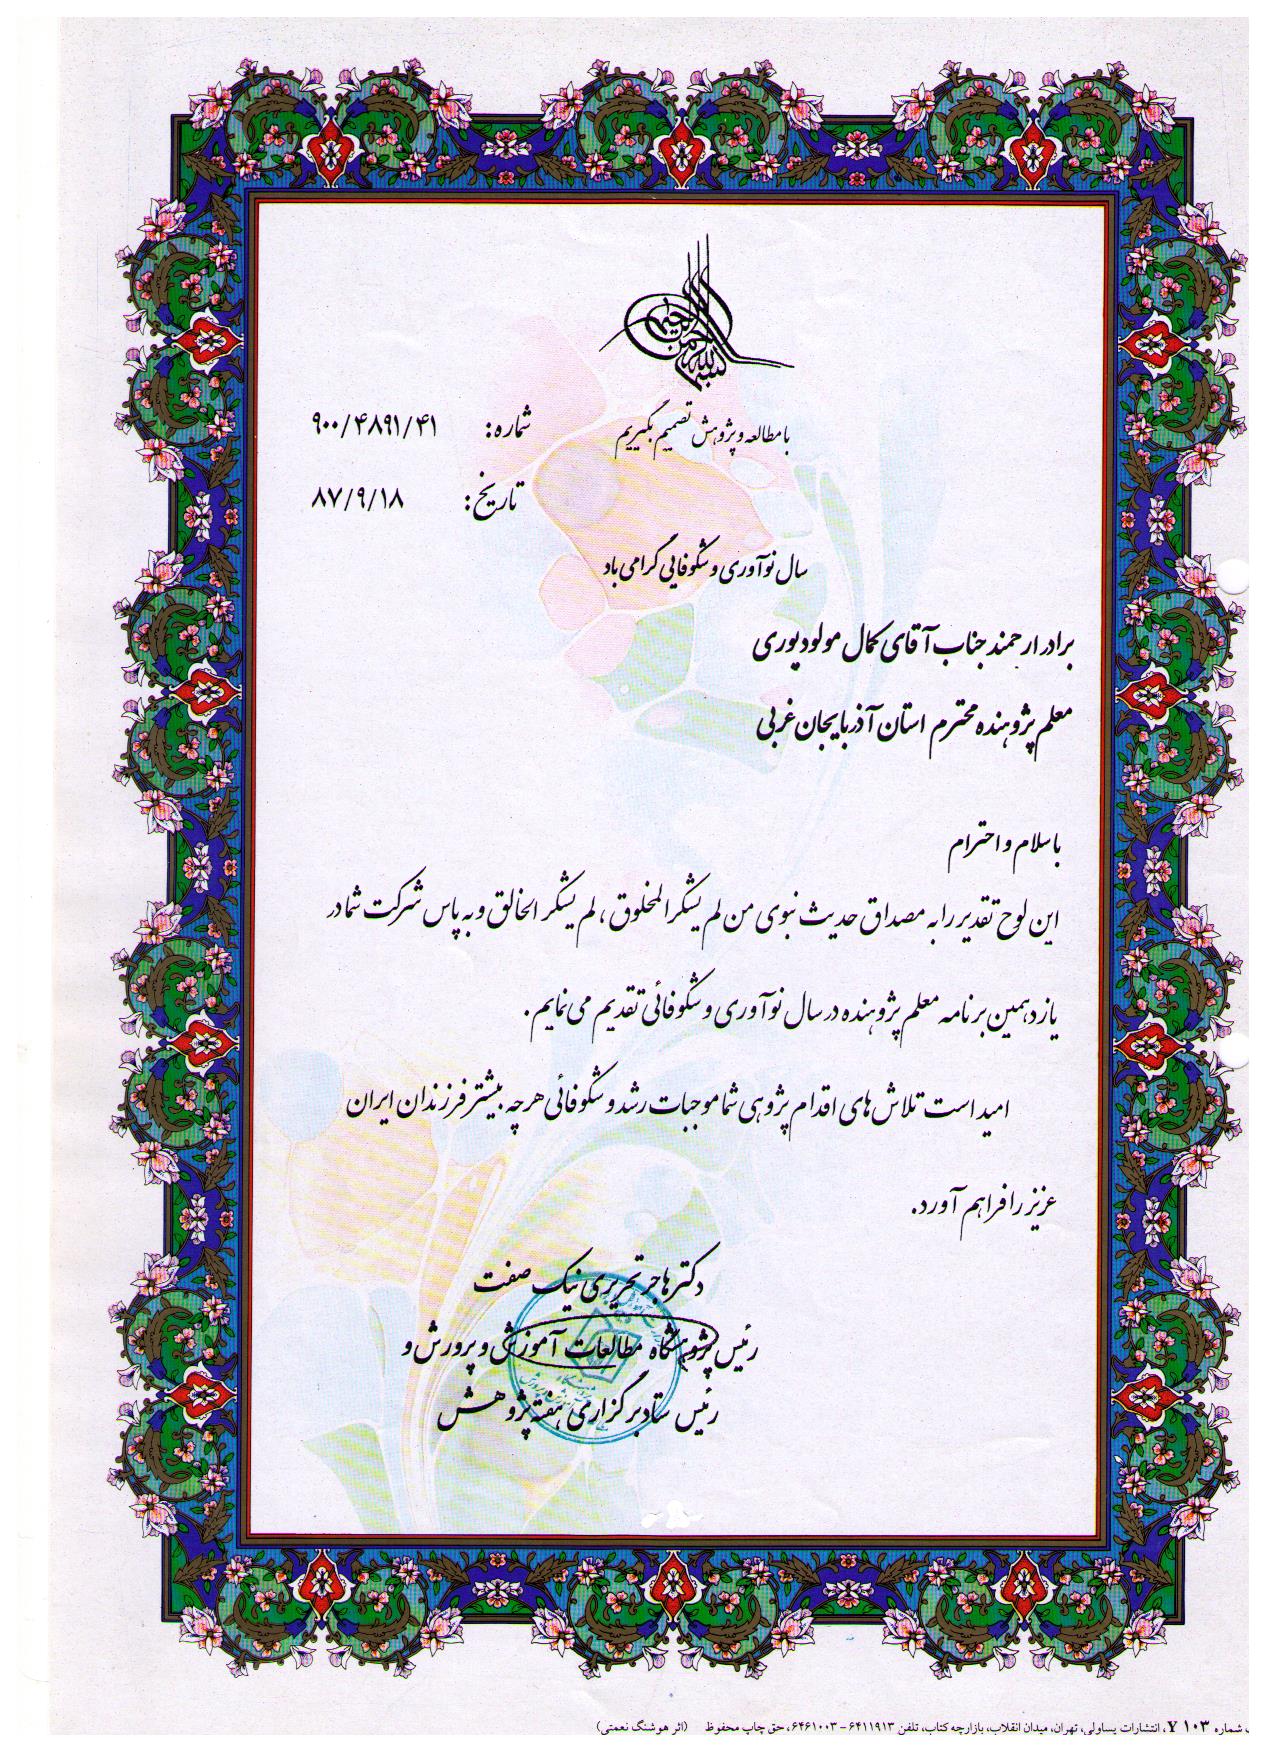 بسم الله الرحمن الرحیم
با مطالعه و پژوهش تصمیم بگیریم
شماره: ۹۰۰/۴۸۹۱/۴۱
تاریخ: ۸۷/۹/۱۸
سال نوآوری و شکوفایی گرامی باد
برادر ارجمند جناب آقای کمال مولودپوری
معلم پژوهنده محترم استان آذربایجان غربی
با سلام و احترام
این لوح تقدیر را به مصداق حدیث نبوی من لم یشکر المخلوق ، لم یشکر الخالق و به پاس شرکت شما در
یازدهمین برنامه معلم پژوهنده در سال نوآوری و شکوفائی تقدیم می نمایم.
امید است تلاش های اقدام پژوهی شما موجبات رشد و شکوفائی هرچه بیشتر فرزندان ایران
عزیز را فراهم آورد.
دکتر هاجر تحریری نیک صفت
رئیس پژوهشگاه مطالعات آموزش و پرورش و
رئیس ستاد برگزاری هفته پژوهش
شماره ۱۰۳ Y، انتشارات یساولی، تهران، میدان انقلاب، بازارچه کتاب، تلفن ۶۴۱۱۹۱۳ - ۶۴۶۱۰۰۳، حق چاپ محفوظ (اثر هوشنگ نعمتی)